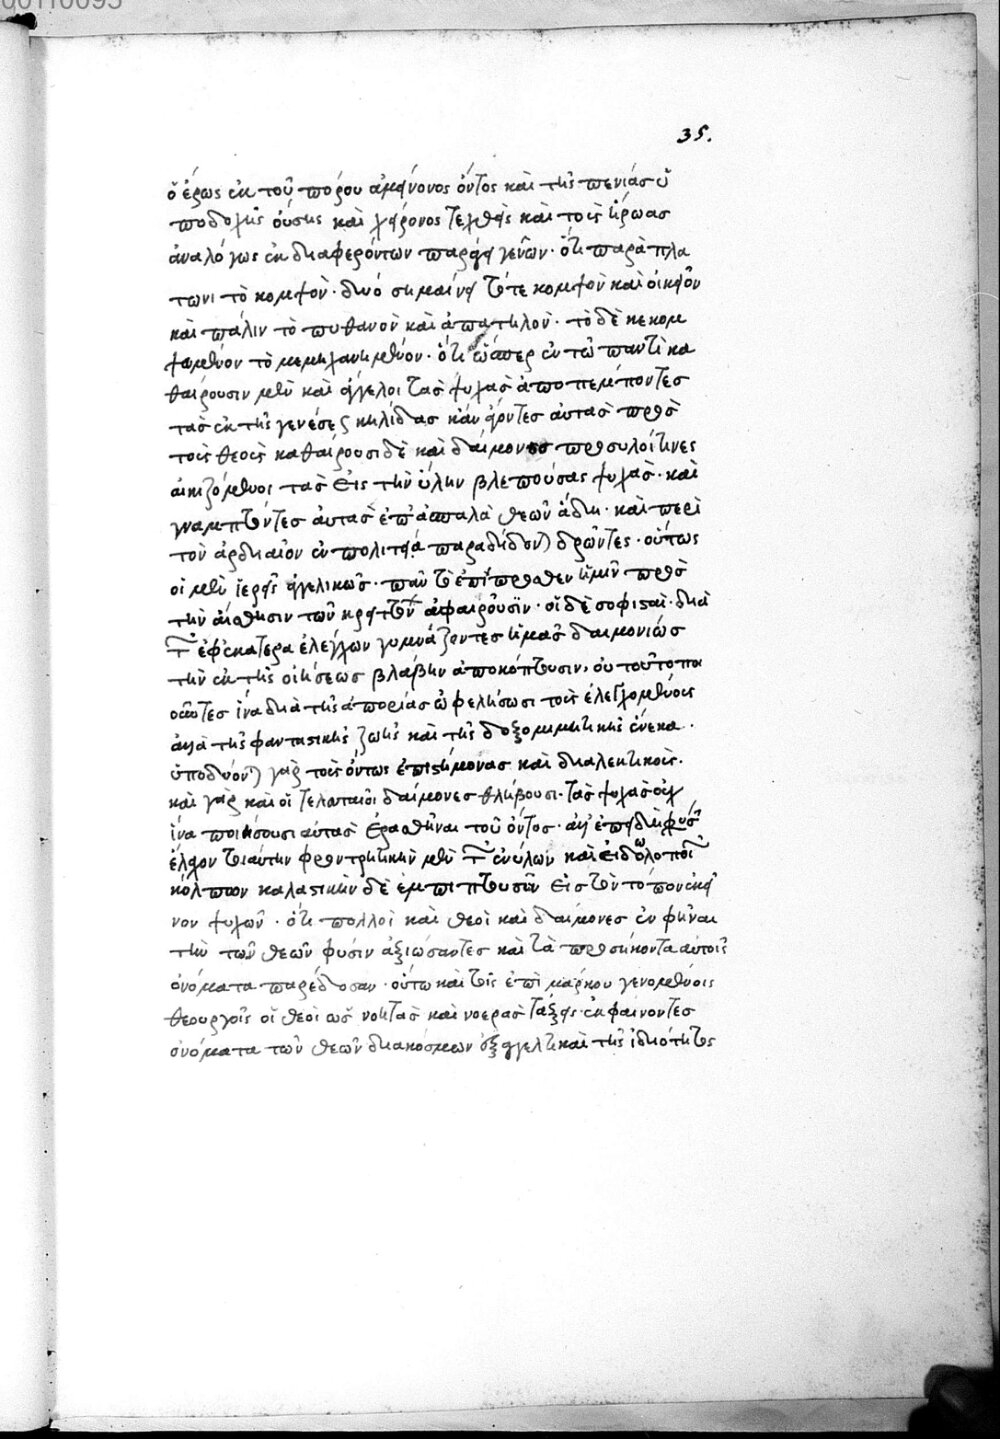 00110095
35.
ὁ ἔρως ἐκ τοῦ πόρου ἀμείνονος ὄντος καὶ τῆς πενίας ὑ
ποδοχῆς οὔσης καὶ χείρονος τεχθεὶς καὶ τοὺς ἥρωας
ἀναλόγως ἐκ διαφερόντων παράγει γενῶν· ὅτι παρὰ πλά
τωνι τὸ κομψὸν· δύο σημαίνει τό τε κομψὸν καὶ οἰκεῖον
καὶ πάλιν τὸ πιθανὸν καὶ ἀπατηλὸν· τὸ δὲ κεκομ
ψευμένον τὸ μεμηχανημένον· ὅτι ὥσπερ ἐν τῷ παντὶ κα
θαίρουσιν μὲν καὶ ἄγγελοι τὰς ψυχὰς ἀποπέμποντες
τὰς ἐκ τῆς γενέσεως κηλίδας κἀν ἄγοντες αὐτὰς πρὸς
τοὺς θεοὺς καθαίρουσι δὲ καὶ δαίμονες προσυλοί τινες
αἰκιζόμενοι τὰς εἰς τὴν ὕλην βλεπούσας ψυχὰς· καὶ
γναμπτόντες αὐτὰς ἐπ' ἀσπαλά θεῶν ἅδη· καὶ περὶ
τὸν ἀρδιαῖον ἐν πολιτείᾳ παραδίδονται δρῶντες· οὕτως
οἱ μὲν ἱερεῖς ἀγγελικῶς· πᾶν τὸ ἐπίπροσθεν ἡμῖν πρὸς
τὴν αἴσθησιν τῶν κρειττόνων ἀφαιροῦσιν· οἱ δὲ σοφισταὶ· διὰ
τῶν ἐφ' ἑκάτερα ἐλέγχων γυμνάζοντες ἡμᾶς δαιμονίως
τὴν ἐκ τῆς οἰήσεως βλάβην ἀποκόπτουσιν, οὐ τοῦτο ποι
οῦντες ἵνα διὰ τῆς ἀπορίας ὠφελήσωσι τοὺς ἐλεγχομένους
ἀλλὰ τῆς φανταστικῆς ζωῆς καὶ τῆς δοξομιμητικῆς ἕνεκα·
ὑποδύονται γὰρ τοὺς ὄντως ἐπιστήμονας καὶ διαλεκτικοὺς·
καὶ γὰρ καὶ οἱ τελευταῖοι δαίμονες θλίβουσι τὰς ψυχὰς οὐχ
ἵνα ποιήσουσι αὐτὰς ἐρασθῆναι τοῦ ὄντος· ἀλλ' ἐπειδὴ φύσιν
ἔλαχον τοιαύτην φρουρητικὴν μὲν τῶν ἐνύλων καὶ εἰδωλοποιῶν
κόλπων κολαστικὴν δὲ ἐμπιπτουσῶν εἰς τὸν τόπον ἐκεῖ
νον ψυχῶν· ὅτι πολλοὶ καὶ θεοὶ καὶ δαίμονες ἐκφῆναι
τὴν τῶν θεῶν φύσιν ἀξιώσαντες καὶ τὰ προσήκοντα αὐτοῖς
ὀνόματα παρέδοσαν· οὕτω καὶ τοῖς ἐπὶ μάρκου γενομένοις
θεουργοῖς οἱ θεοὶ ὡς νοητὰς καὶ νοερὰς τάξεις ἐκφαίνοντες
ὀνόματα τῶν θεῶν διακόσμων ἐξαγγελτικὰ τῆς ἰδιότητος